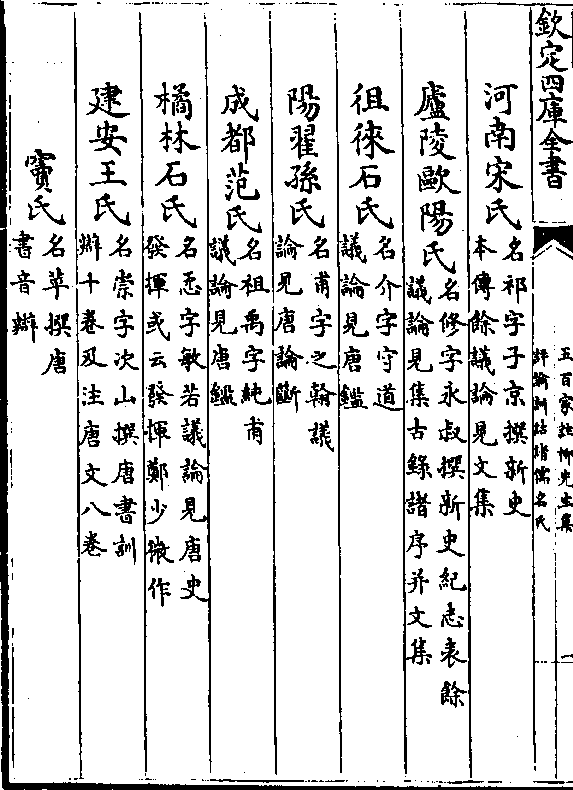 欽定四庫全書
五百家註柳先生集
評論訓詁諸儒名氏
一
河南宋氏 名祁字子京撰新史
本傳餘議論見文集
廬陵歐陽氏 名修字永叔撰新史紀志表餘
議論見集古錄諸序并文集
徂徠石氏 名介字守道
議論見唐鑑
陽翟孫氏 名甫字之翰議
論見唐論斷
成都范氏 名祖禹字純甫
議論見唐鑑
橘林石氏 名㤅字敏若議論見唐史
發揮或云發揮鄭少微作
建安王氏 名崇字次山撰唐書訓
辯十卷及注唐文八卷
竇氏 名苹撰唐
書音辯